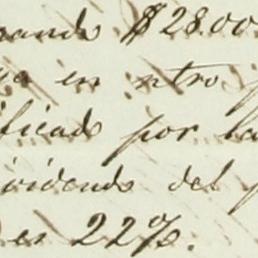 $28.00
en ntro
ificado por la
ividendo del p
es 22%.